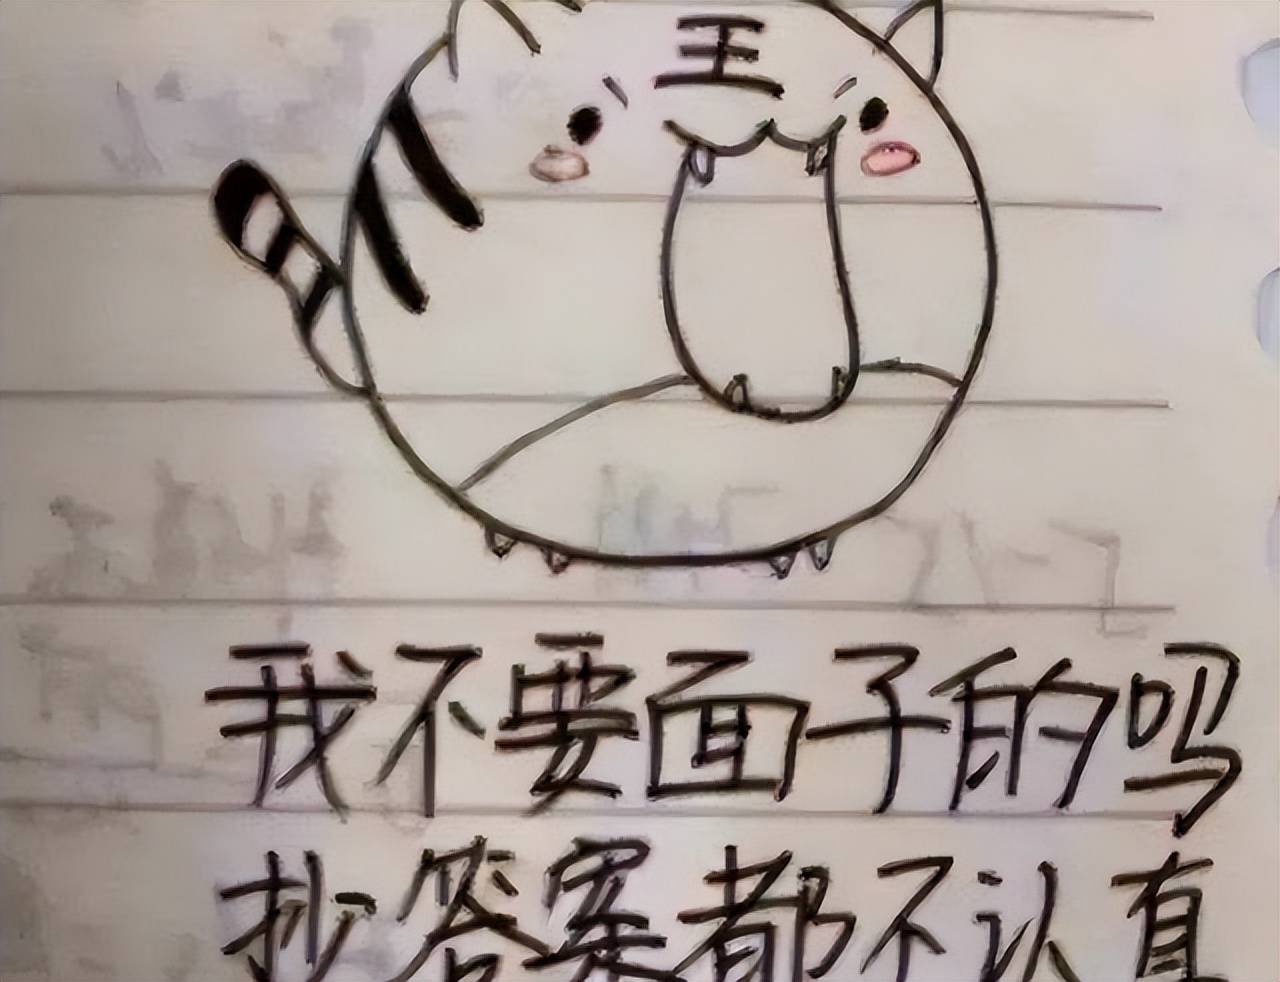 王
我不要面子的吗
抄答案都不认真